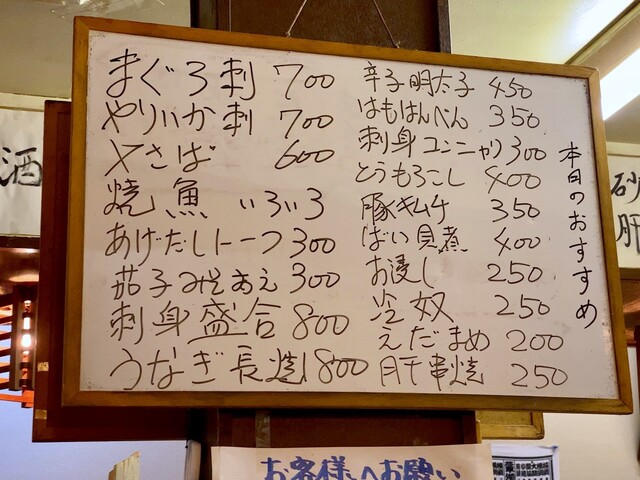 本日のおすすめ
まぐろ刺 700
やりいか刺 700
〆さば 600
焼魚 いろいろ
あげだしトーフ 300
茄子みそあえ 300
刺身盛合 800
うなぎ長焼 800
辛子明太子 450
はもはんぺん 350
刺身コンニャク 300
とうもろこし 400
豚キムチ 350
ばい貝煮 400
お浸し 250
冷奴 250
えだまめ 200
肝串焼 250
酒
砂肝
お客様へお願い